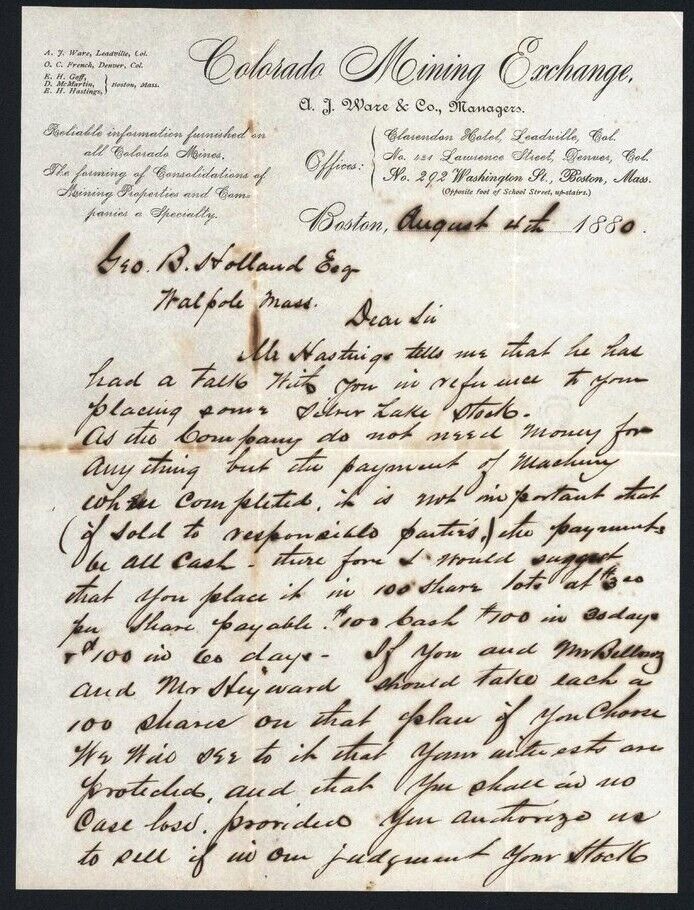 A. J. Ware, Leadville, Col.
O. C. French, Denver, Col.
E. H. Goff,
D. McMartin,
E. H. Hastings,
Boston, Mass.
Colorado Mining Exchange,
A. J. Ware & Co., Managers.
Reliable information furnished on
all Colorado Mines,
The forming of Consolidations of
Mining Properties and Com-
panies a Specialty.
Offices:
Clarendon Hotel, Leadville, Col.
No. 421 Lawrence Street, Denver, Col.
No. 292 Washington St., Boston, Mass.
(Opposite foot of School Street, up-stairs.)
Boston, August 4th 1880.
Geo. B. Holland Esq
Walpole Mass.
Dear Sir
Mr Hastings tells me that he has
had a talk with you in reference to your
placing some Silver Lake Stock.
As the Company do not need money for
anything but the payment of Machinery
when completed, it is not important that
(if sold to responsible parties,) the payments
be all cash - there fore I would suggest
that you place it in 100 share lots at $3 00
per share payable. $100 Cash $100 in 30 days
+ $100 in 60 days - If you and Mr Bellows
and Mr Heyward should take each a
100 shares on that plan if you choose
We will see to it that your interests are
protected, and that you shall in no
case lose. provided you authorize us
to sell if in our judgment your stock